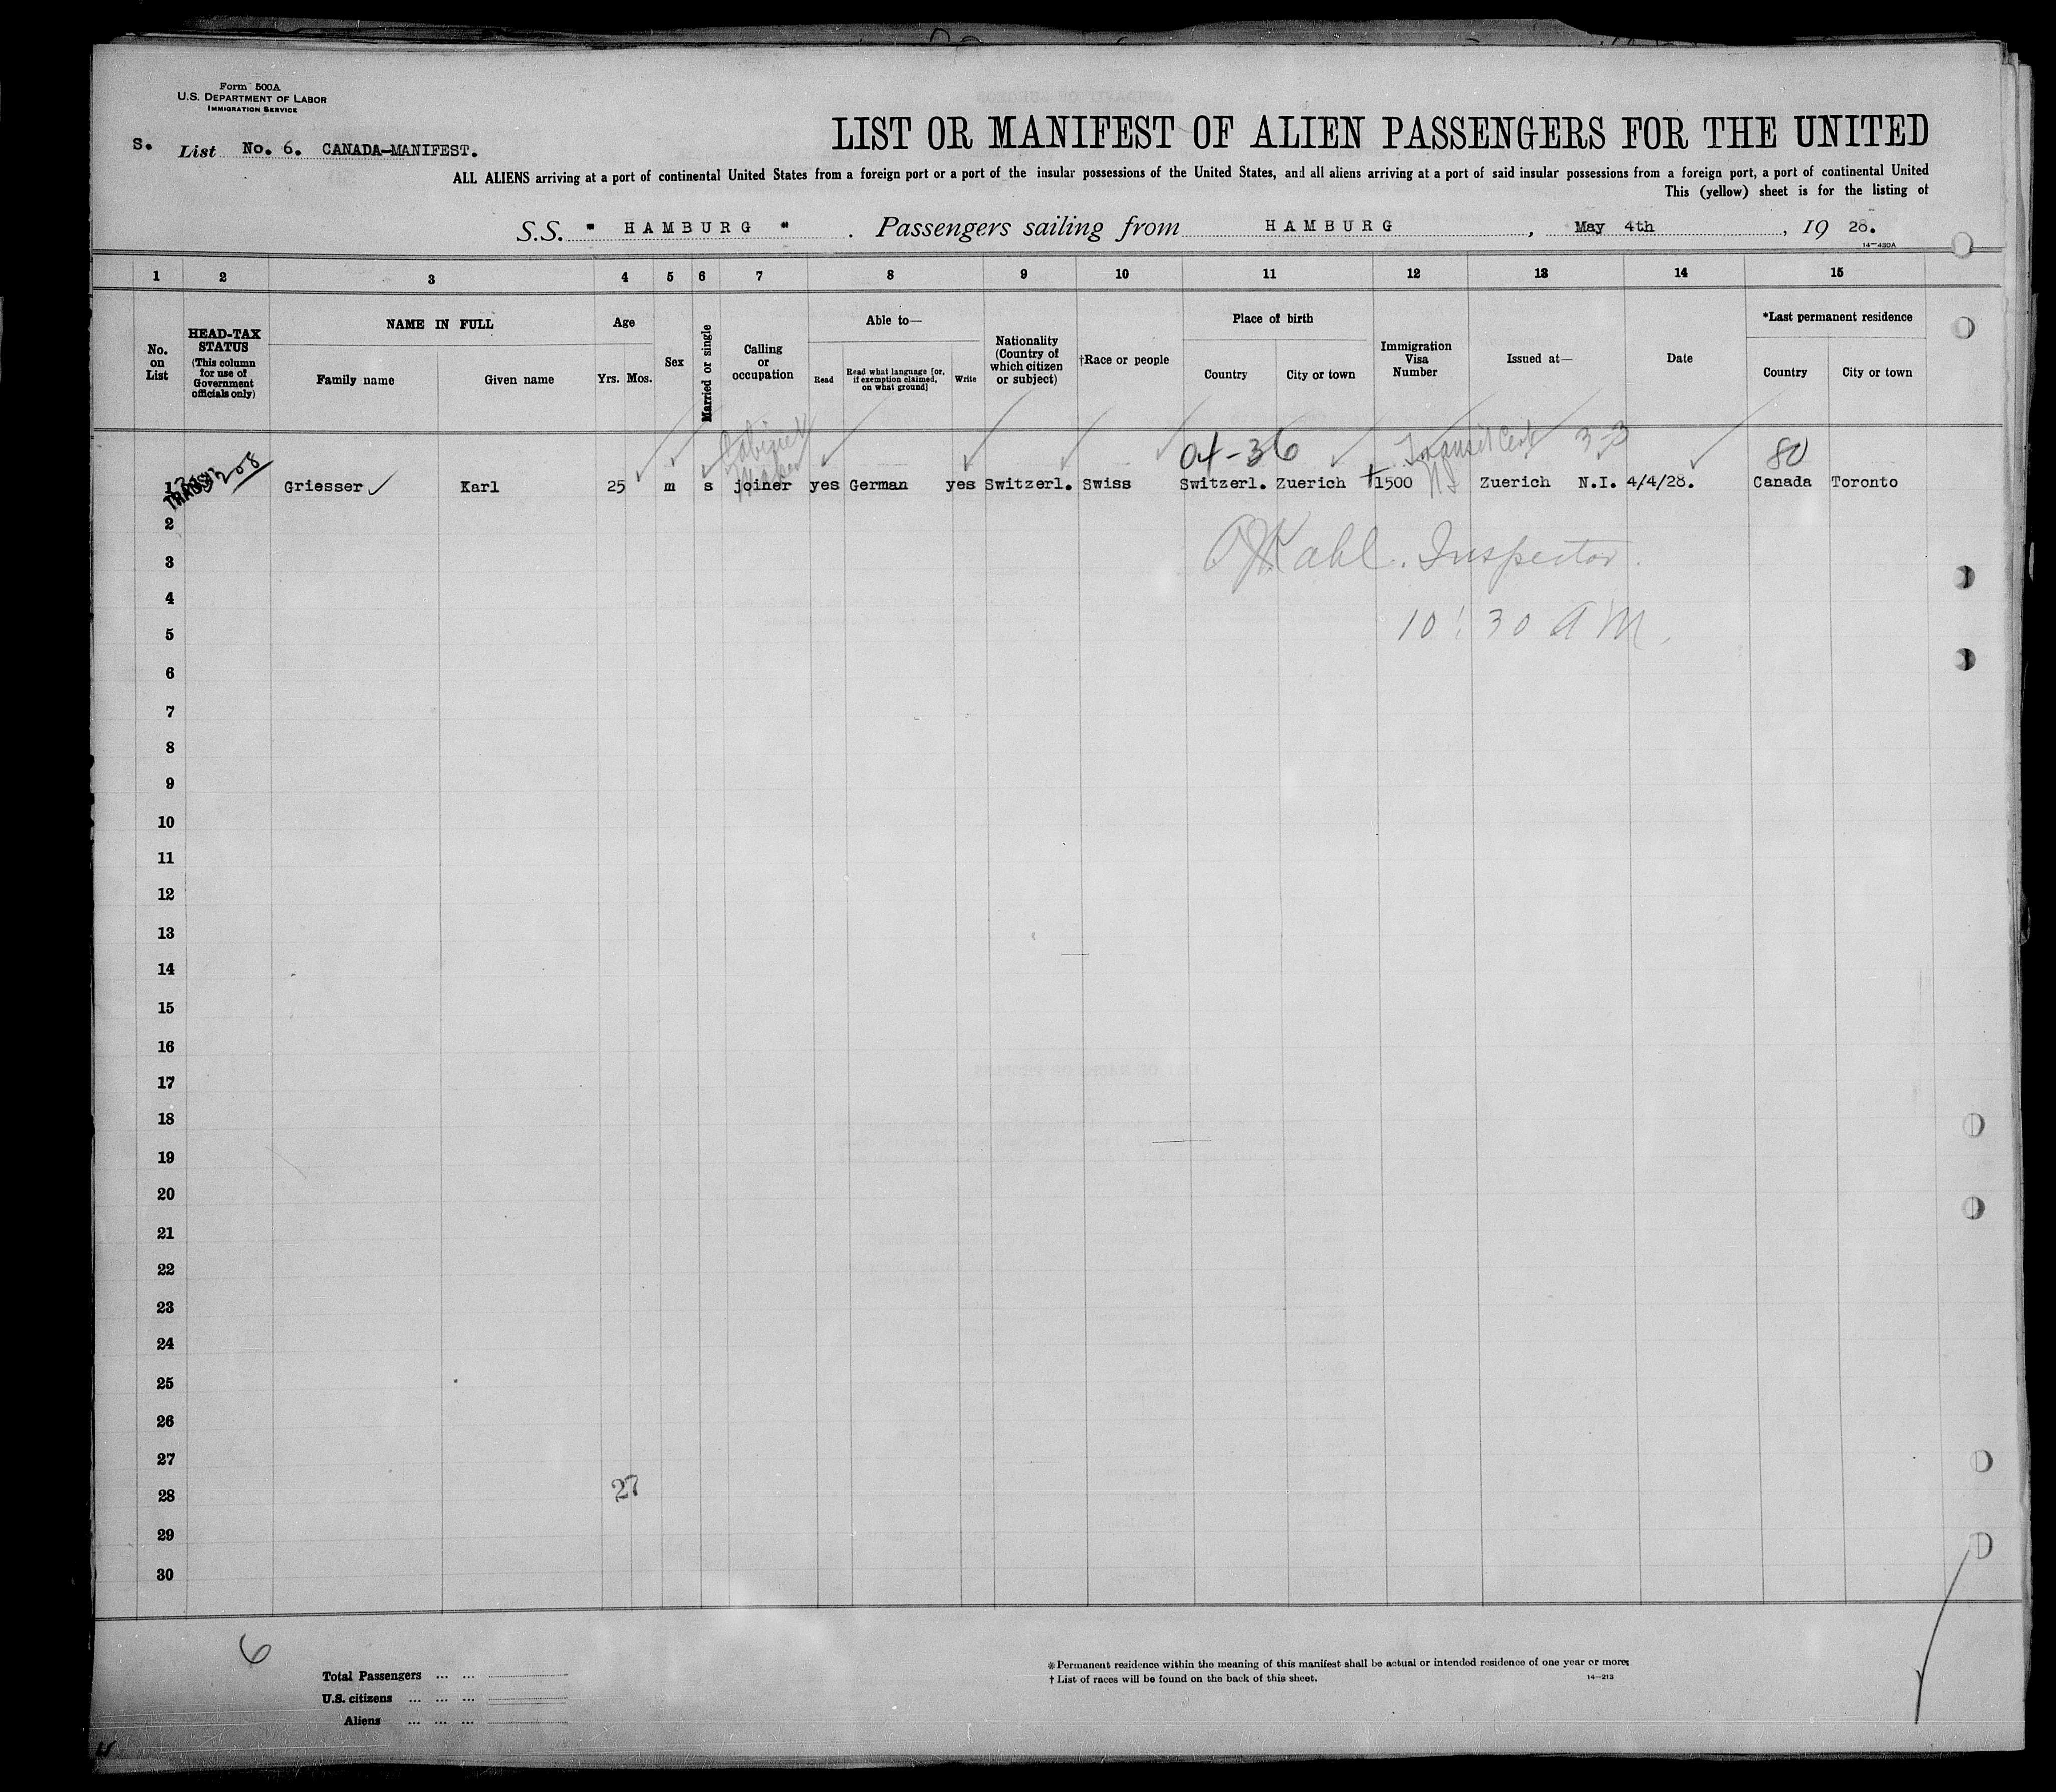 Form 500A
U.S. DEPARTMENT OF LABOR
IMMIGRATION SERVICE
S. List No. 6. CANADA-MANIFEST.
LIST OR MANIFEST OF ALIEN PASSENGERS FOR THE UNITED
ALL ALIENS arriving at a port of continental United States from a foreign port or a port of the insular possessions of the United States, and all aliens arriving at a port of said insular possessions from a foreign port, a port of continental United
This (yellow) sheet is for the listing of
S.S. " HAMBURG " . Passengers sailing from HAMBURG , May 4th , 19 28.
14—430A
1 2 3 4 5 6 7 8 9 10 11 12 13 14 15
No. on List
HEAD-TAX STATUS
(This column for use of Government officials only)
NAME IN FULL
Family name Given name
Age
Yrs. Mos.
Sex
Married or single
Calling or occupation
Able to—
Read
Read what language [or, if exemption claimed, on what ground]
Write
Nationality (Country of which citizen or subject)
†Race or people
Place of birth
Country City or town
Immigration Visa Number
Issued at—
Date
*Last permanent residence
Country City or town
Cabinet Maker 04-36 Transit Cert 3-3 80
1 TRANSIT 208 Griesser Karl 25 m s joiner yes German yes Switzerl. Swiss Switzerl. Zuerich †1500 Zuerich N.I. 4/4/28. Canada Toronto
2
3 Kahl. Inspector.
4
5 10:30 AM.
6
7
8
9
10
11
12
13
14
15
16
17
18
19
20
21
22
23
24
25
26
27
28 27
29
30
6
Total Passengers ... ...
U.S. citizens ... ... ...
Aliens ... ... ...
*Permanent residence within the meaning of this manifest shall be actual or intended residence of one year or more.
† List of races will be found on the back of this sheet.
14—213